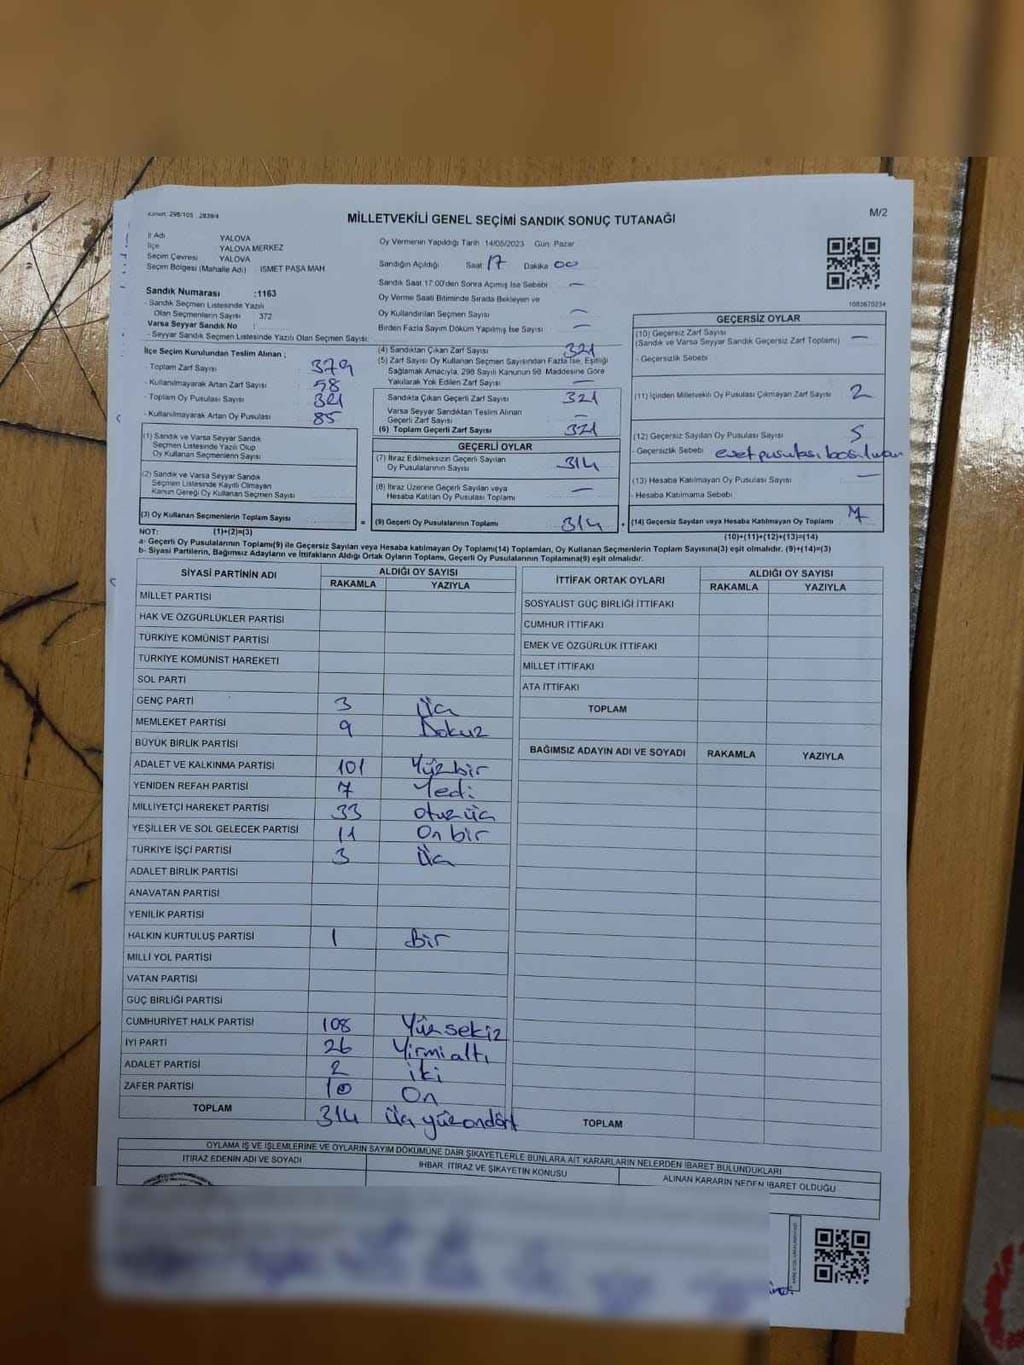 MİLLETVEKİLİ GENEL SEÇİMİ SANDIK SONUÇ TUTANAĞI
M/2
İl Adı YALOVA
İlçe YALOVA MERKEZ
Seçim Çevresi YALOVA
Seçim Bölgesi (Mahalle Adı) İSMET PAŞA MAH
Sandık Numarası :1163
- Sandık Seçmen Listesinde Yazılı
Olan Seçmenlerin Sayısı 372
Varsa Seyyar Sandık No :
- Seyyar Sandık Seçmen Listesinde Yazılı Olan Seçmen Sayısı:
Oy Vermenin Yapıldığı Tarih 14/05/2023 Gün Pazar
Sandığın Açıldığı Saat 17 Dakika 00
Sandık Saat 17.00'den Sonra Açılmış İse Sebebi —
Oy Verme Saati Bitiminde Sırada Bekleyen ve
Oy Kullandırılan Seçmen Sayısı —
Birden Fazla Sayım Döküm Yapılmış İse Sayısı —
1083670234
İlçe Seçim Kurulundan Teslim Alınan ;
- Toplam Zarf Sayısı 379
- Kullanılmayarak Artan Zarf Sayısı 58
- Toplam Oy Pusulası Sayısı 321
- Kullanılmayarak Artan Oy Pusulası 85
(1) Sandık ve Varsa Seyyar Sandık
Seçmen Listesinde Yazılı Olup
Oy Kullanan Seçmenlerin Sayısı
(2) Sandık ve Varsa Seyyar Sandık
Seçmen Listesinde Kayıtlı Olmayan
Kanun Gereği Oy Kullanan Seçmen Sayısı
(3) Oy Kullanan Seçmenlerin Toplam Sayısı
(4) Sandıktan Çıkan Zarf Sayısı 321
(5) Zarf Sayısı Oy Kullanan Seçmen Sayısından Fazla İse, Eşitliği
Sağlamak Amacıyla, 298 Sayılı Kanunun 98. Maddesine Göre
Yakılarak Yok Edilen Zarf Sayısı —
Sandıkta Çıkan Geçerli Zarf Sayısı 321
Varsa Seyyar Sandıktan Teslim Alınan
Geçerli Zarf Sayısı —
(6) Toplam Geçerli Zarf Sayısı 321
GEÇERLİ OYLAR
(7) İtiraz Edilmeksizin Geçerli Sayılan
Oy Pusulalarının Sayısı 314
(8) İtiraz Üzerine Geçerli Sayılan veya
Hesaba Katılan Oy Pusulası Toplamı —
= (9) Geçerli Oy Pusulalarının Toplamı 314
GEÇERSİZ OYLAR
(10) Geçersiz Zarf Sayısı
(Sandık ve Varsa Seyyar Sandık Geçersiz Zarf Toplamı) —
- Geçersizlik Sebebi
(11) İçinden Milletvekili Oy Pusulası Çıkmayan Zarf Sayısı 2
(12) Geçersiz Sayılan Oy Pusulası Sayısı 5
- Geçersizlik Sebebi
(13) Hesaba Katılmayan Oy Pusulası Sayısı —
- Hesaba Katılmama Sebebi
+ (14) Geçersiz Sayılan veya Hesaba Katılmayan Oy Toplamı 7
NOT: (1)+(2)=(3)
(10)+(11)+(12)+(13)=(14)
a- Geçerli Oy Pusulaları Toplamı(9) ile Geçersiz Sayılan veya Hesaba katılmayan Oy Toplamı(14) Toplamları, Oy Kullanan Seçmenlerin Toplam Sayısına(3) eşit olmalıdır. (9)+(14)=(3)
b- Siyasi Partilerin, Bağımsız Adayların ve İttifakların Aldığı Ortak Oyların Toplamı, Geçerli Oy Pusulalarının Toplamına(9) eşit olmalıdır.
SİYASİ PARTİNİN ADI ALDIĞI OY SAYISI
RAKAMLA YAZIYLA
MİLLET PARTİSİ
HAK VE ÖZGÜRLÜKLER PARTİSİ
TÜRKİYE KOMÜNİST PARTİSİ
TÜRKİYE KOMÜNİST HAREKETİ
SOL PARTİ
GENÇ PARTİ 3 Üç
MEMLEKET PARTİSİ 9 Dokuz
BÜYÜK BİRLİK PARTİSİ
ADALET VE KALKINMA PARTİSİ 101 Yüzbir
YENİDEN REFAH PARTİSİ 7 Yedi
MİLLİYETÇİ HAREKET PARTİSİ 33 otuzüç
YEŞİLLER VE SOL GELECEK PARTİSİ 11 On bir
TÜRKİYE İŞÇİ PARTİSİ 3 Üç
ADALET BİRLİK PARTİSİ
ANAVATAN PARTİSİ
YENİLİK PARTİSİ
HALKIN KURTULUŞ PARTİSİ 1 Bir
MİLLİ YOL PARTİSİ
VATAN PARTİSİ
GÜÇ BİRLİĞİ PARTİSİ
CUMHURİYET HALK PARTİSİ 108 Yüzsekiz
İYİ PARTİ 26 Yirmialtı
ADALET PARTİSİ 2 iki
ZAFER PARTİSİ 10 On
TOPLAM 314 Üçyüzondört
İTTİFAK ORTAK OYLARI ALDIĞI OY SAYISI
RAKAMLA YAZIYLA
SOSYALİST GÜÇ BİRLİĞİ İTTİFAKI
CUMHUR İTTİFAKI
EMEK VE ÖZGÜRLÜK İTTİFAKI
MİLLET İTTİFAKI
ATA İTTİFAKI
TOPLAM
BAĞIMSIZ ADAYIN ADI VE SOYADI RAKAMLA YAZIYLA
TOPLAM
OYLAMA İŞ VE İŞLEMLERİNE VE OYLARIN SAYIM DÖKÜMÜNE DAİR ŞİKAYETLERLE BUNLARA AİT KARARLARIN NELERDEN İBARET BULUNDUKLARI
İTİRAZ EDENİN ADI VE SOYADI
İHBAR, İTİRAZ VE ŞİKAYETİN KONUSU
ALINAN KARARIN NEDEN İBARET OLDUĞU